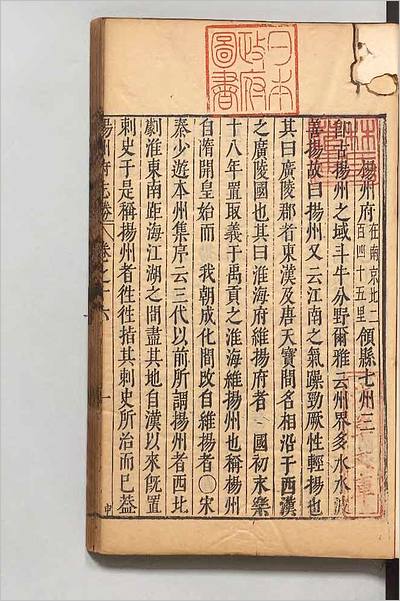 日本
政府
圖書
揚州府在南京北二百四十五里領縣七州三
卽古揚州之域斗牛分野爾雅云州界多水水波
善揚故曰揚州又云江南之氣躁勁厥性輕揚也
其曰廣陵郡者東漢及唐天寶間名相沿于西漢
之廣陵國也其曰淮海府維揚府者 國初永樂
十八年置取義于禹貢之淮海維揚州也稱揚州
自隋開皇始而 我朝成化間改自維揚者〇宋
秦少遊本州集序云三代以前所謂揚州者西北
劇淮東南距海江湖之間盡其地自漢以來旣置
刺史于是稱揚州者徃徃指其刺史所治而已葢
揚州府志勝 卷之六 一